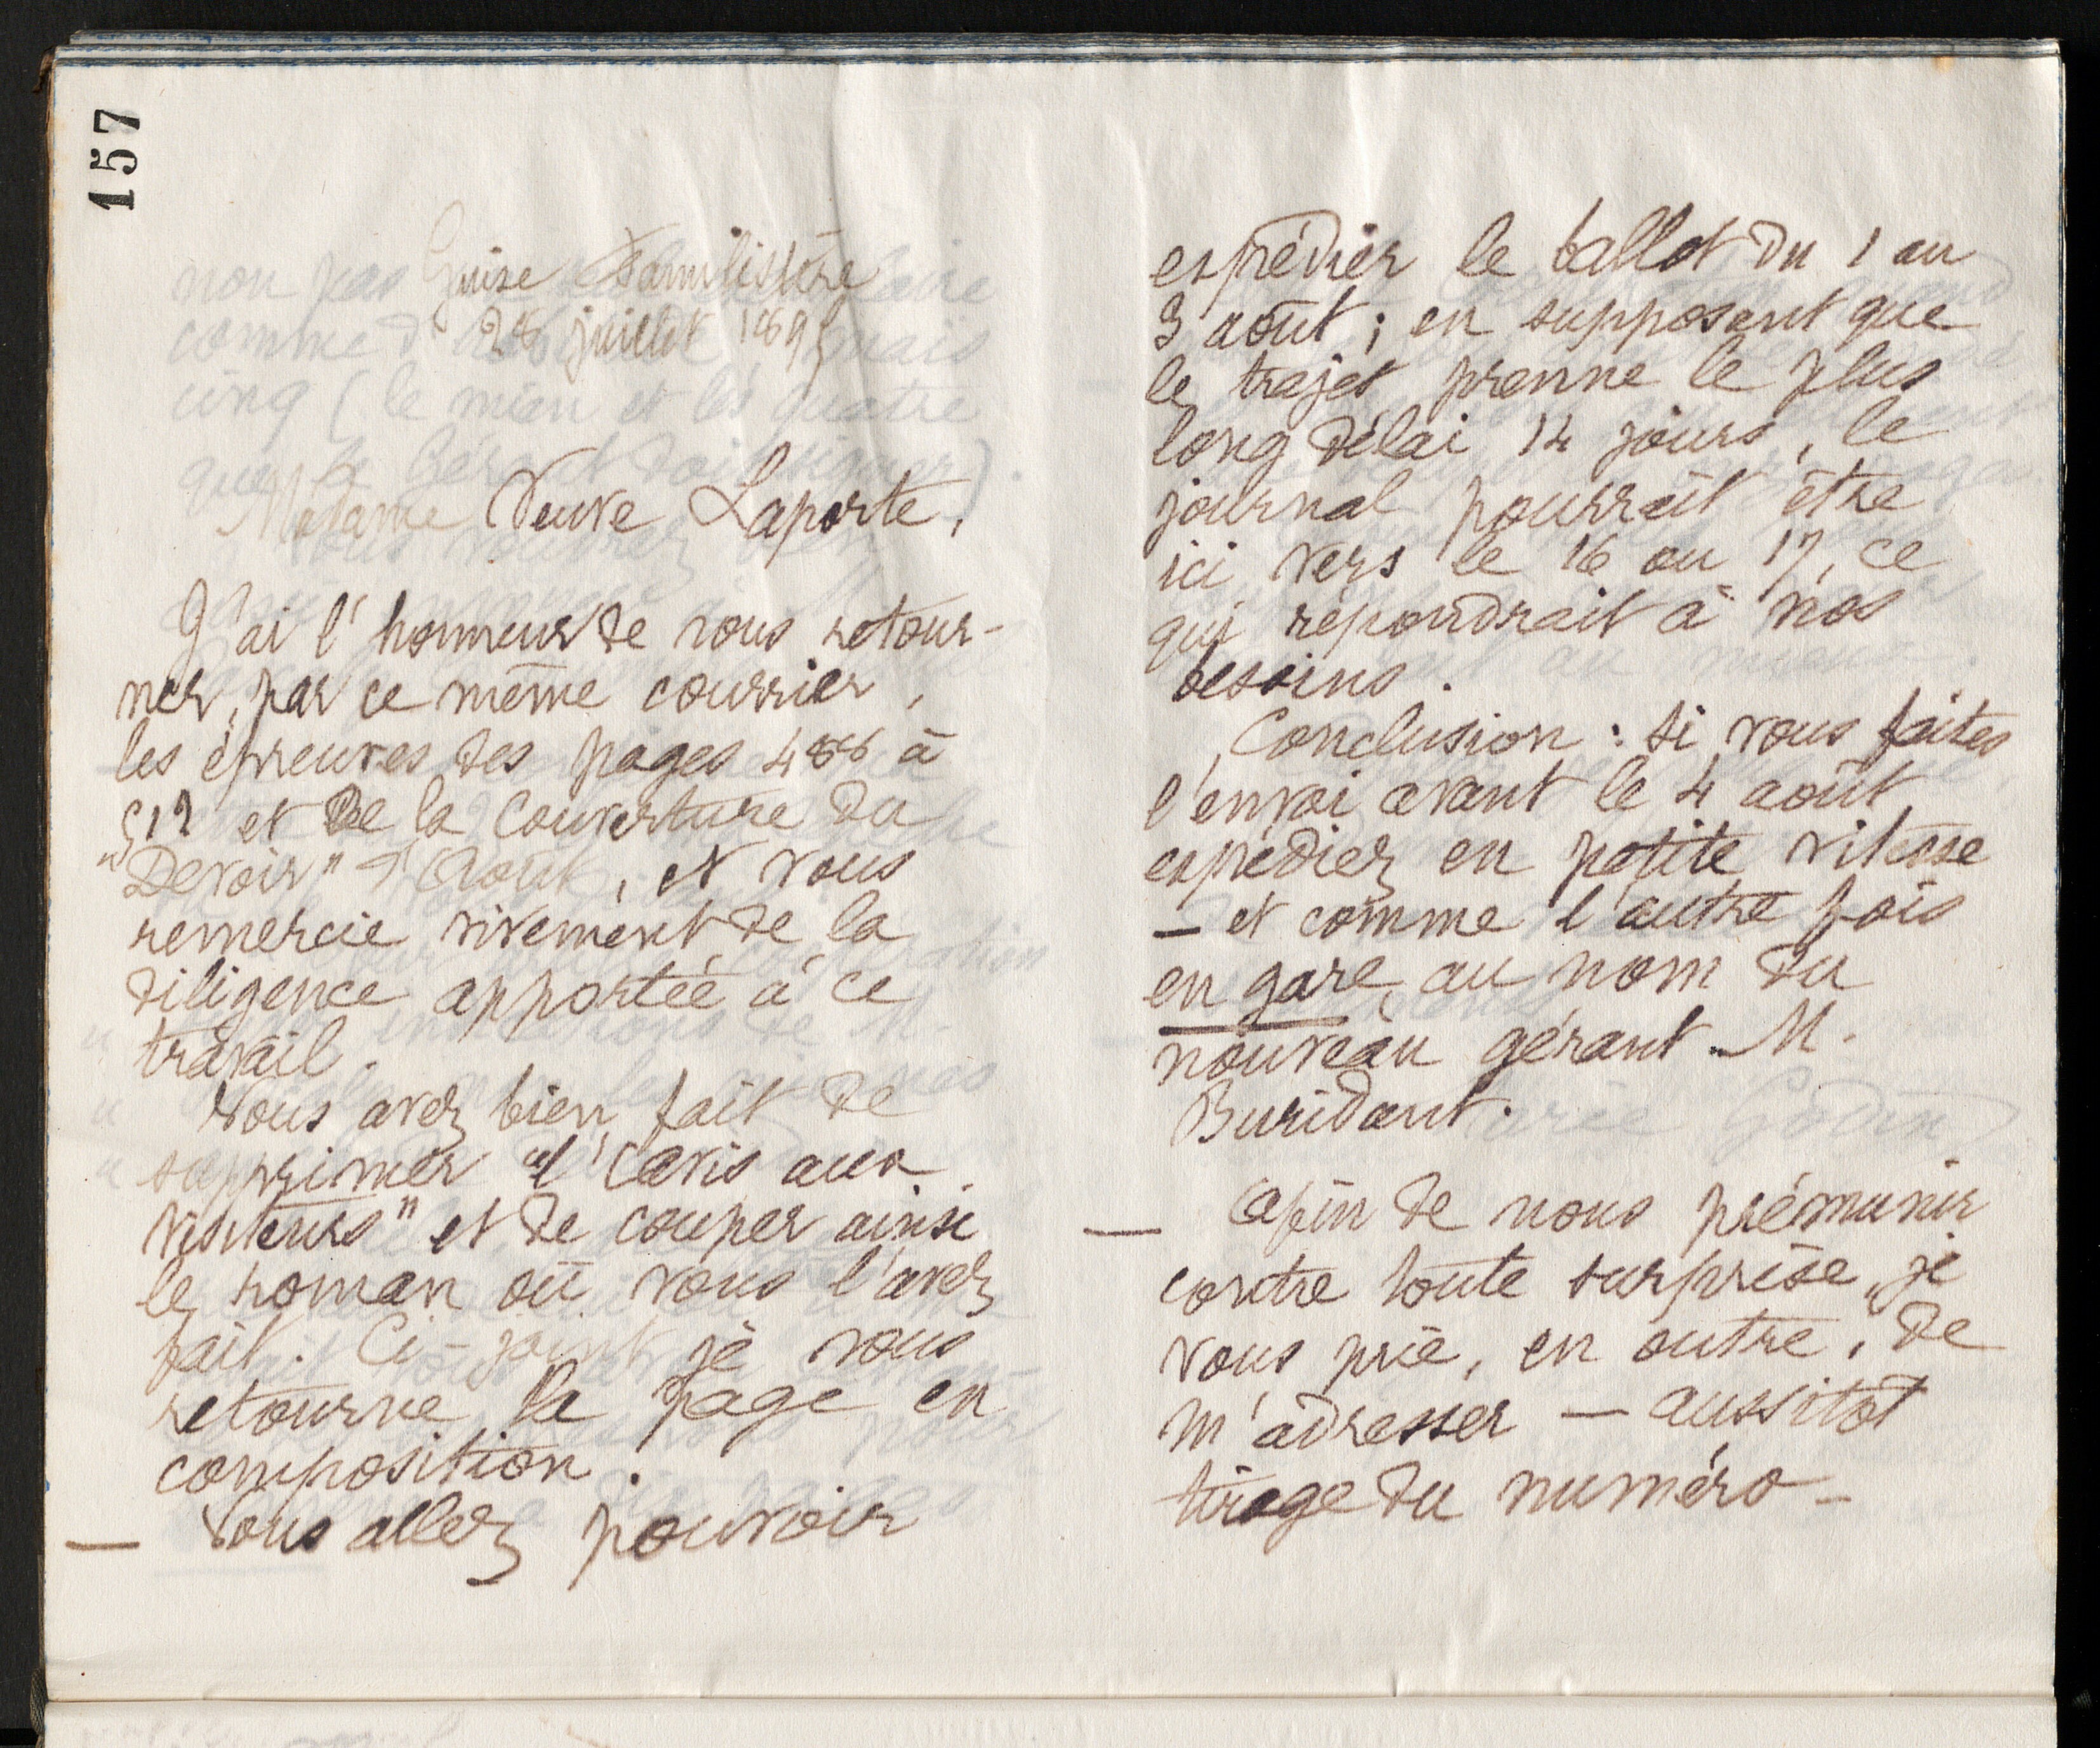 157
Guise Familistère
28 juillet 1895
Madame Veuve Laporte,
J'ai l'honneur de vous retour-
ner, par ce même courrier,
les épreuves des pages 486 à
512 et de la Couverture du
"Devoir" d'Août, et vous
remercie vivement de la
diligence apportée à ce
travail.
Vous avez bien fait de
supprimer "l'Avis aux
visiteurs" et de couper ainsi
le roman où vous l'avez
fait. Ci-joint je vous
retourne la page en
composition.
— Vous allez pouvoir
expédier le ballot du 1 au
3 août ; en supposant que
le trajet prenne le plus
long délai 14 jours, le
journal pourrait être
ici vers le 16 ou 17, ce
qui répondrait à nos
besoins.
Conclusion : si vous faites
l'envoi avant le 4 août
expédiez en petite vitesse
— et comme l'autre fois
en gare, au nom du
nouveau gérant M.
Buridant.
— Afin de nous prémunir
contre toute surprise, je
vous prie, en outre, de
m'adresser — aussitôt
tirage du numéro —